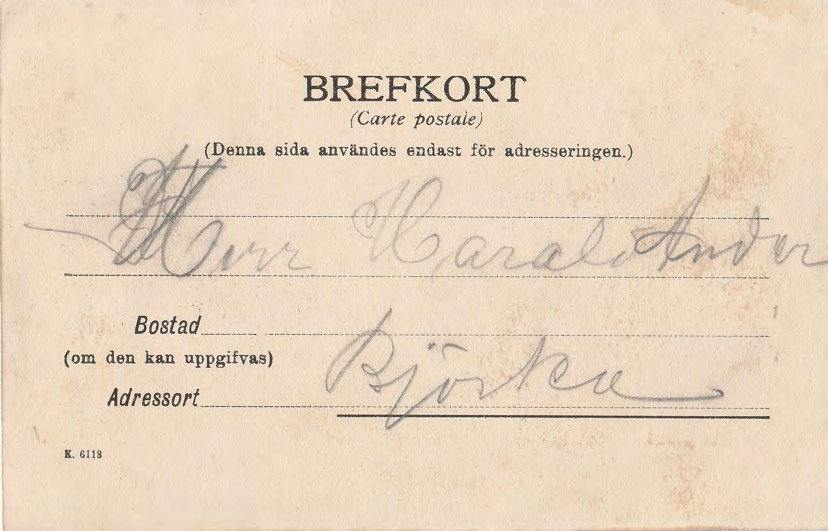 BREFKORT
(Carte postale)
(Denna sida användes endast för adresseringen.)
Herr Harald Ander
Bostad
(om den kan uppgifvas)
Björka
Adressort
K. 6118